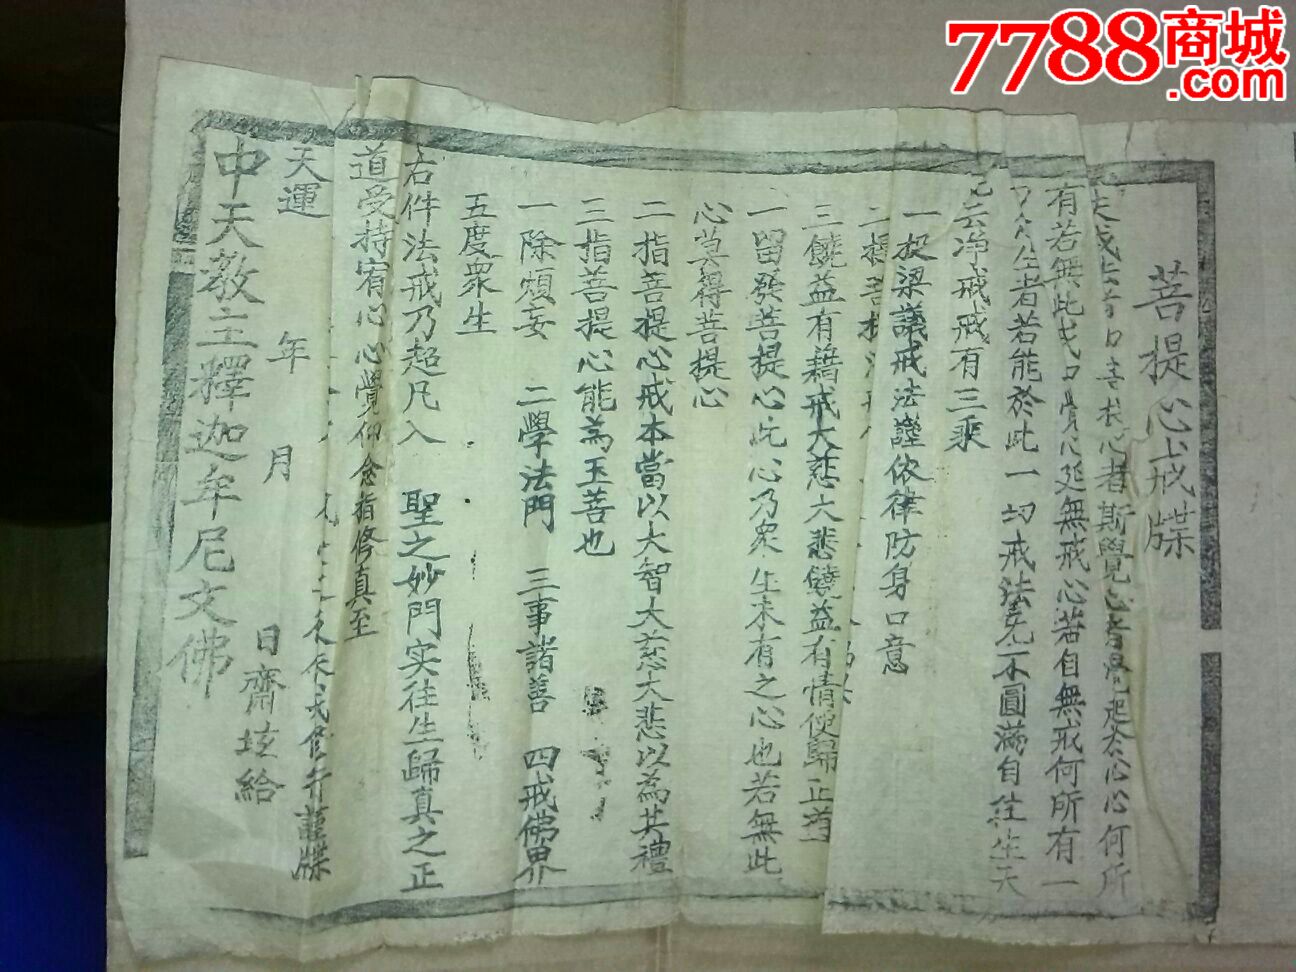 7788商城
.com
菩提心戒牒
者斯覺心者覺起於心心何所
有若無此無戒心若自無戒何所有一
生者若能於此一切戒法无不圓滿自往生天
云净戒戒有三乘
一授梁議戒法證依律防身口意
二授菩提
三饒益有藉戒大慈大悲饒益有情使歸正道
一留發菩提心此心乃衆生未有之心也若無此
心莫得菩提心
二指菩提心戒本當以大智大慈大悲以為其禮
三指菩提心能為玉善也
一除煩妄 二學法門 三事諸善 四戒佛界
五度衆生
右件法戒乃超凡入 聖之妙門实往生歸真之正
道受持宥心心覺仰念者修真至
修行謹牒
天運 年 月 日齋垓給
中天教主釋迦牟尼文佛